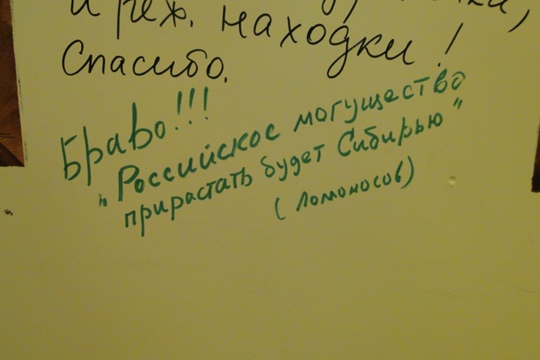 и реж. находки!
Спасибо.
Браво!!!
"Российское могущество
прирастать будет Сибирью"
(Ломоносов)